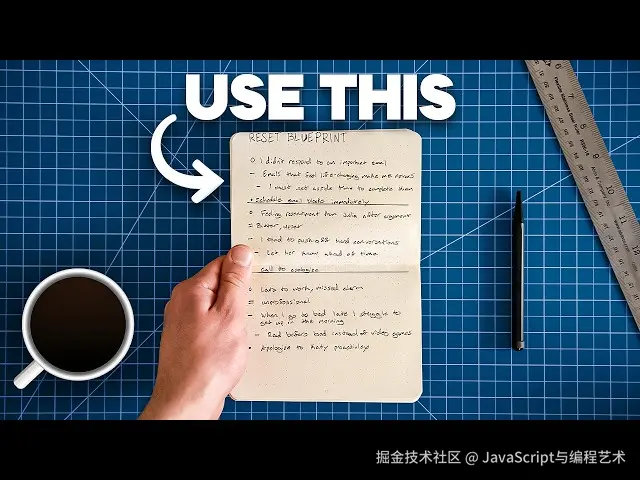 USE THIS
RESET BLUEPRINT
o I didn't respond to an important email
– Emails that feel life-changing make me nervous
– I must set aside time to complete them
• Schedule email blocks immediately
o Feeling resentment from Julia after argument
= Bitter, upset
– I tend to push off hard conversations
– Let her know ahead of time
Call to apologize
o Late to work, missed alarm
= unprofessional
– When I go to bed late I struggle to
get up in the morning
– Read before bed instead of video games
• Apologize to Katy proactively
6
7
8
9
10
11
掘金技术社区 @ JavaScript与编程艺术